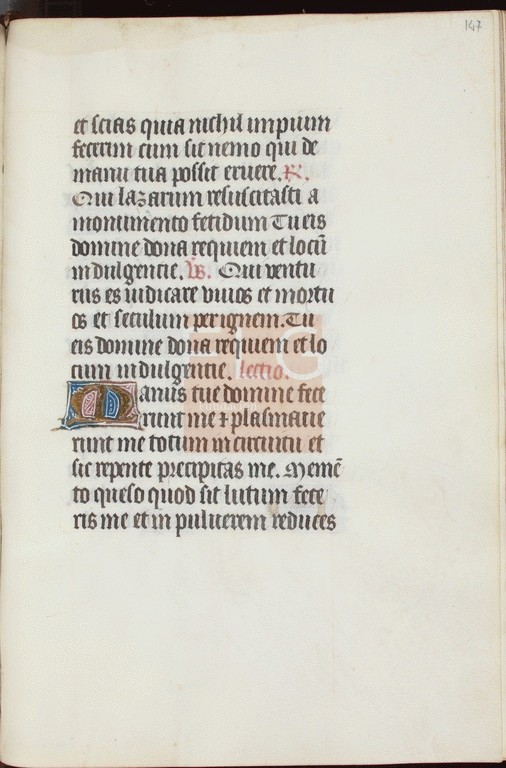 147
et scias quia nichil impium
fecerim cum sit nemo qui de
manu tua possit eruere. R.
Qui lazarum resuscitasti a
monumento fetidum Tu eis
domine dona requiem et locū
indulgentie. Vs. Qui ventu
rus es iudicare viuos et mortu
os et seculum per ignem. Tu
eis domine dona requiem et lo
cum indulgentie. lectio.
Manus tue domine fece
runt me ⁊ plasmaue
runt me totum in circuitu et
sic repente precipitas me. Memē
to queso quod sit lutum fece
ris me et in puluerem reduces